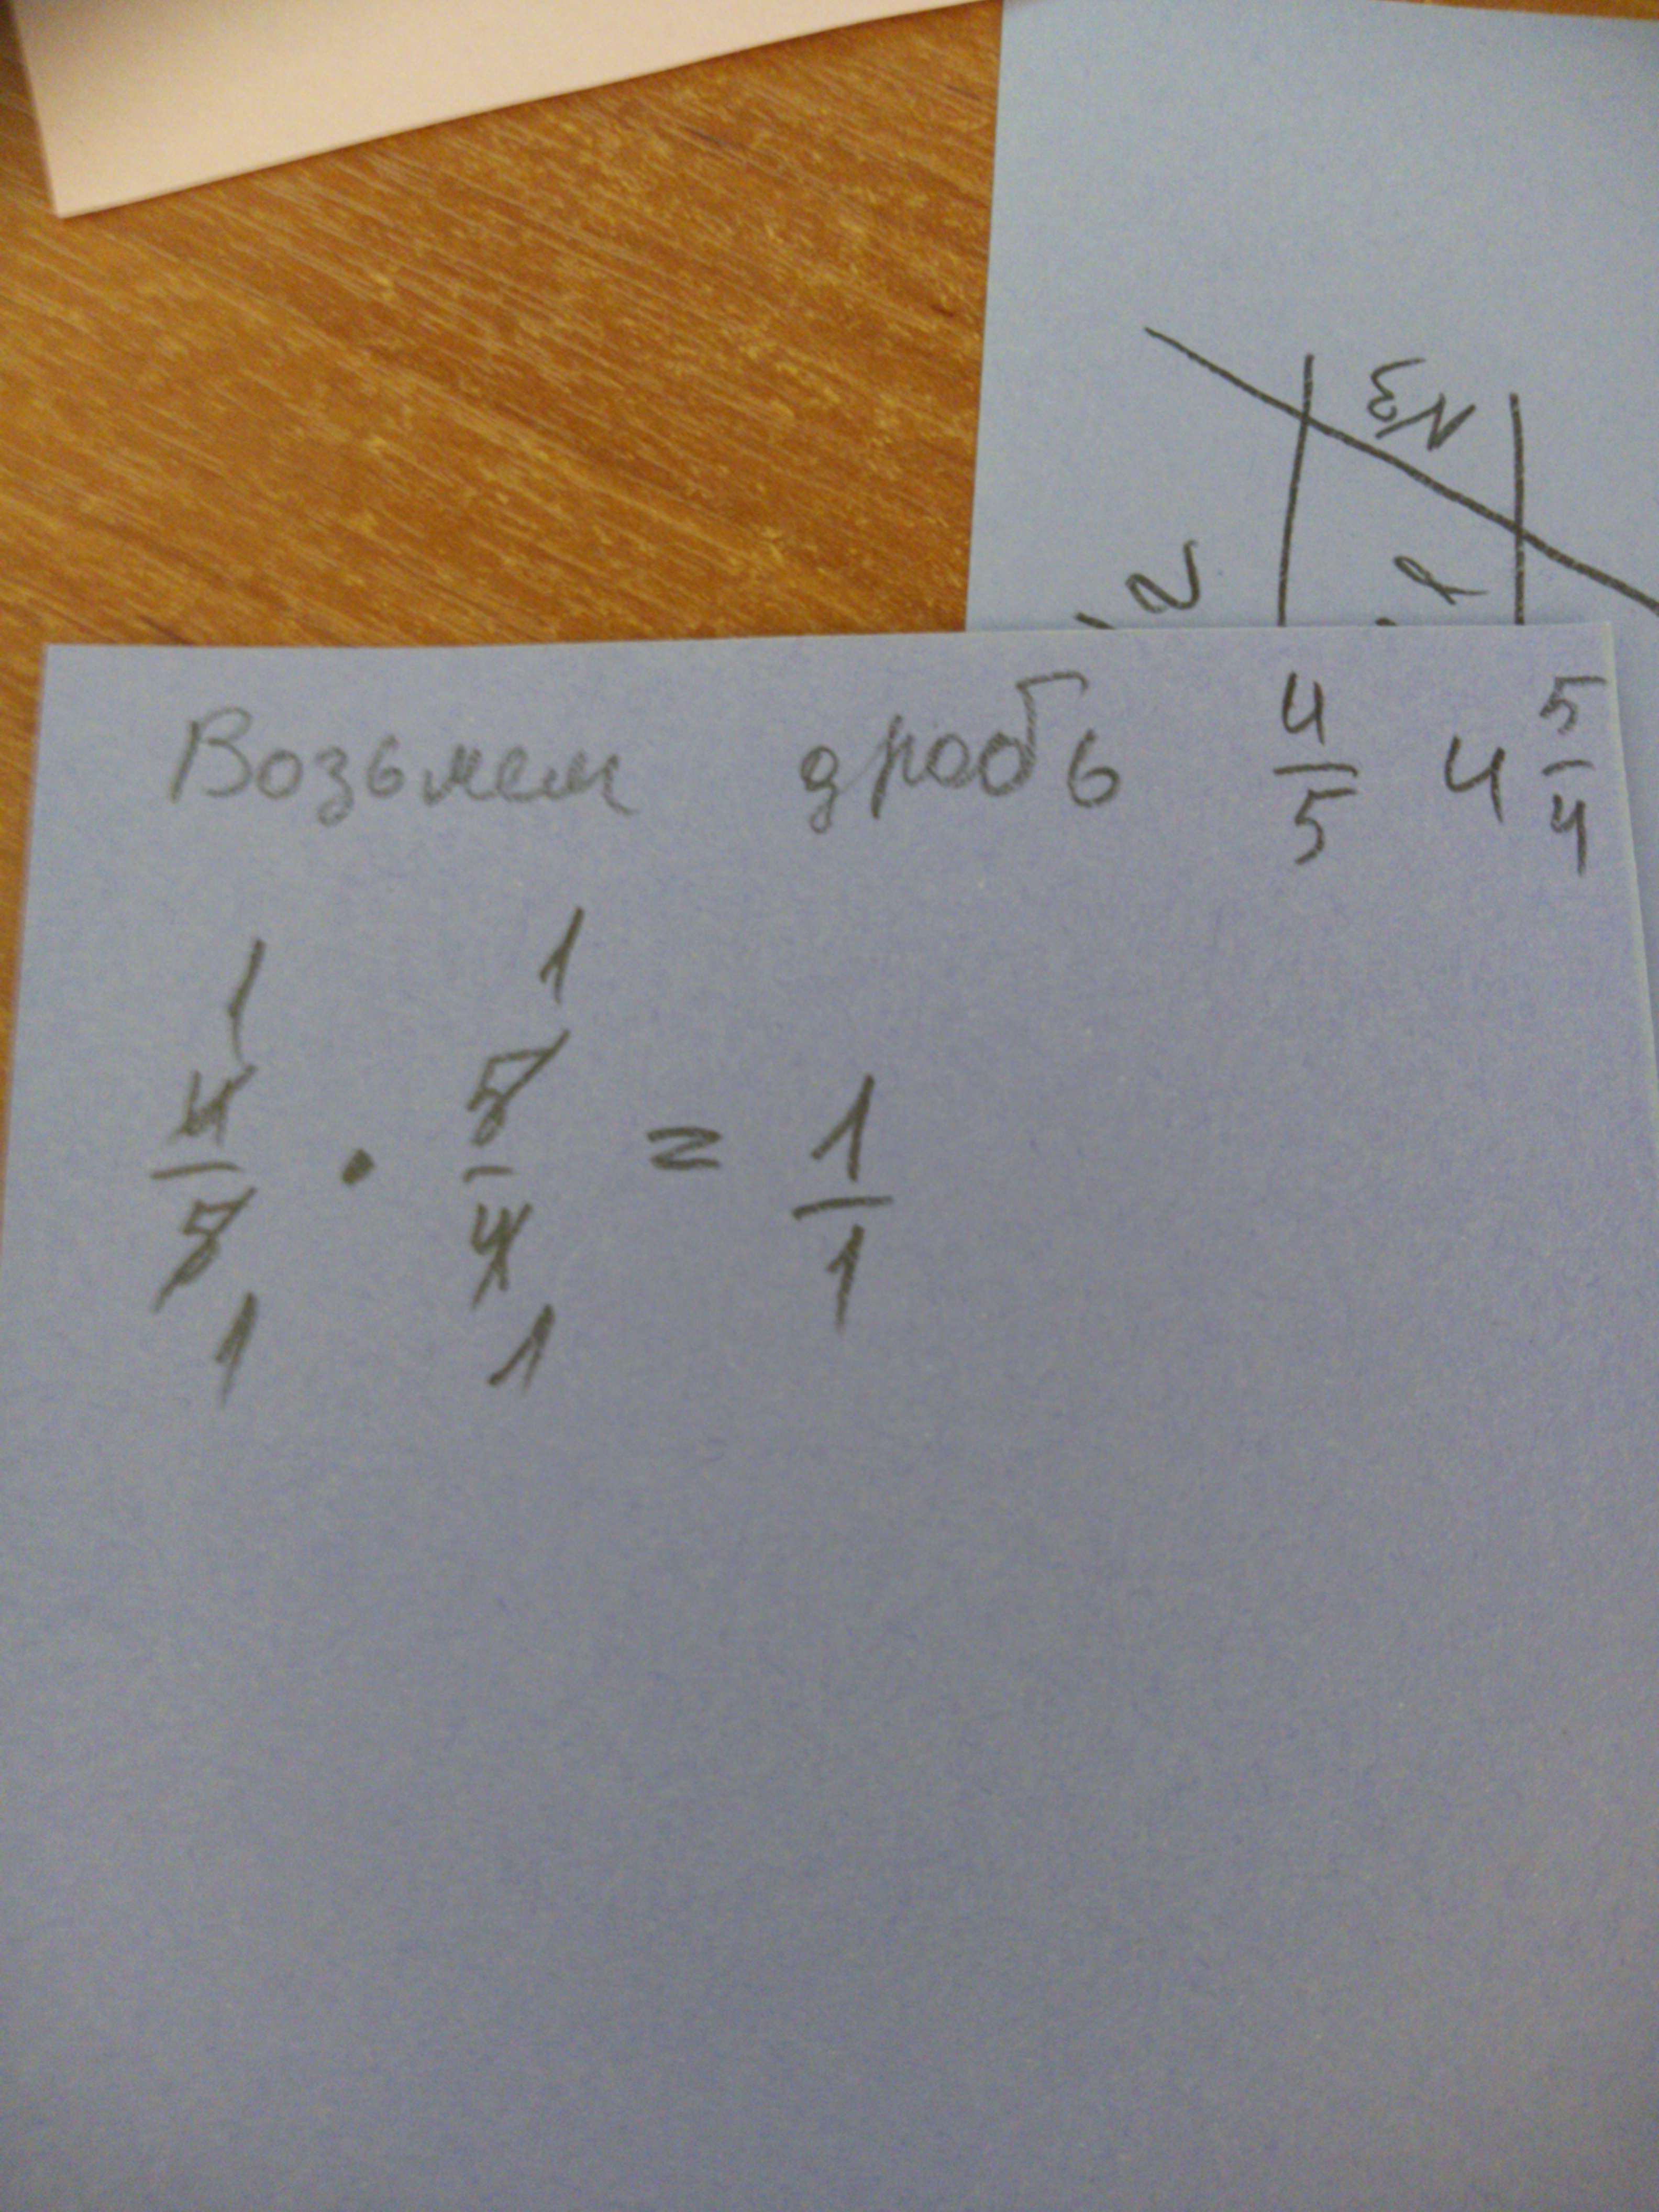 N3
Возьмем дробь 4/5 и 5/4
1 1
4/5 · 5/4 = 1/1
1 1